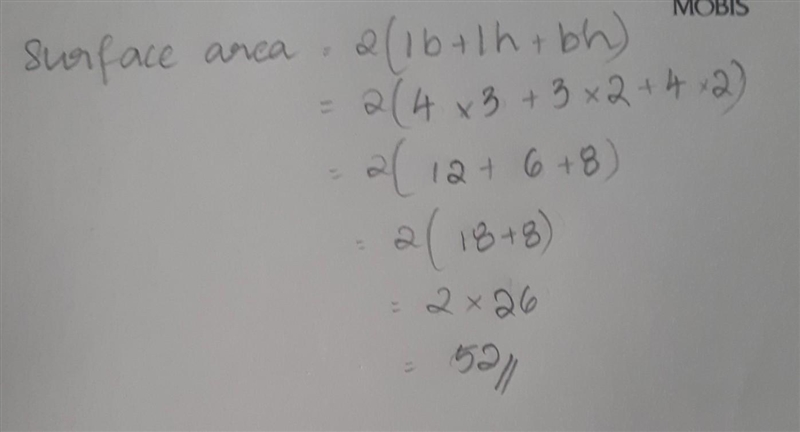 MOBIS
Surface area = 2(lb+lh+bh)
= 2(4 × 3 + 3 × 2 + 4 × 2)
= 2( 12 + 6 + 8)
= 2( 18+8)
= 2 × 26
= 52//